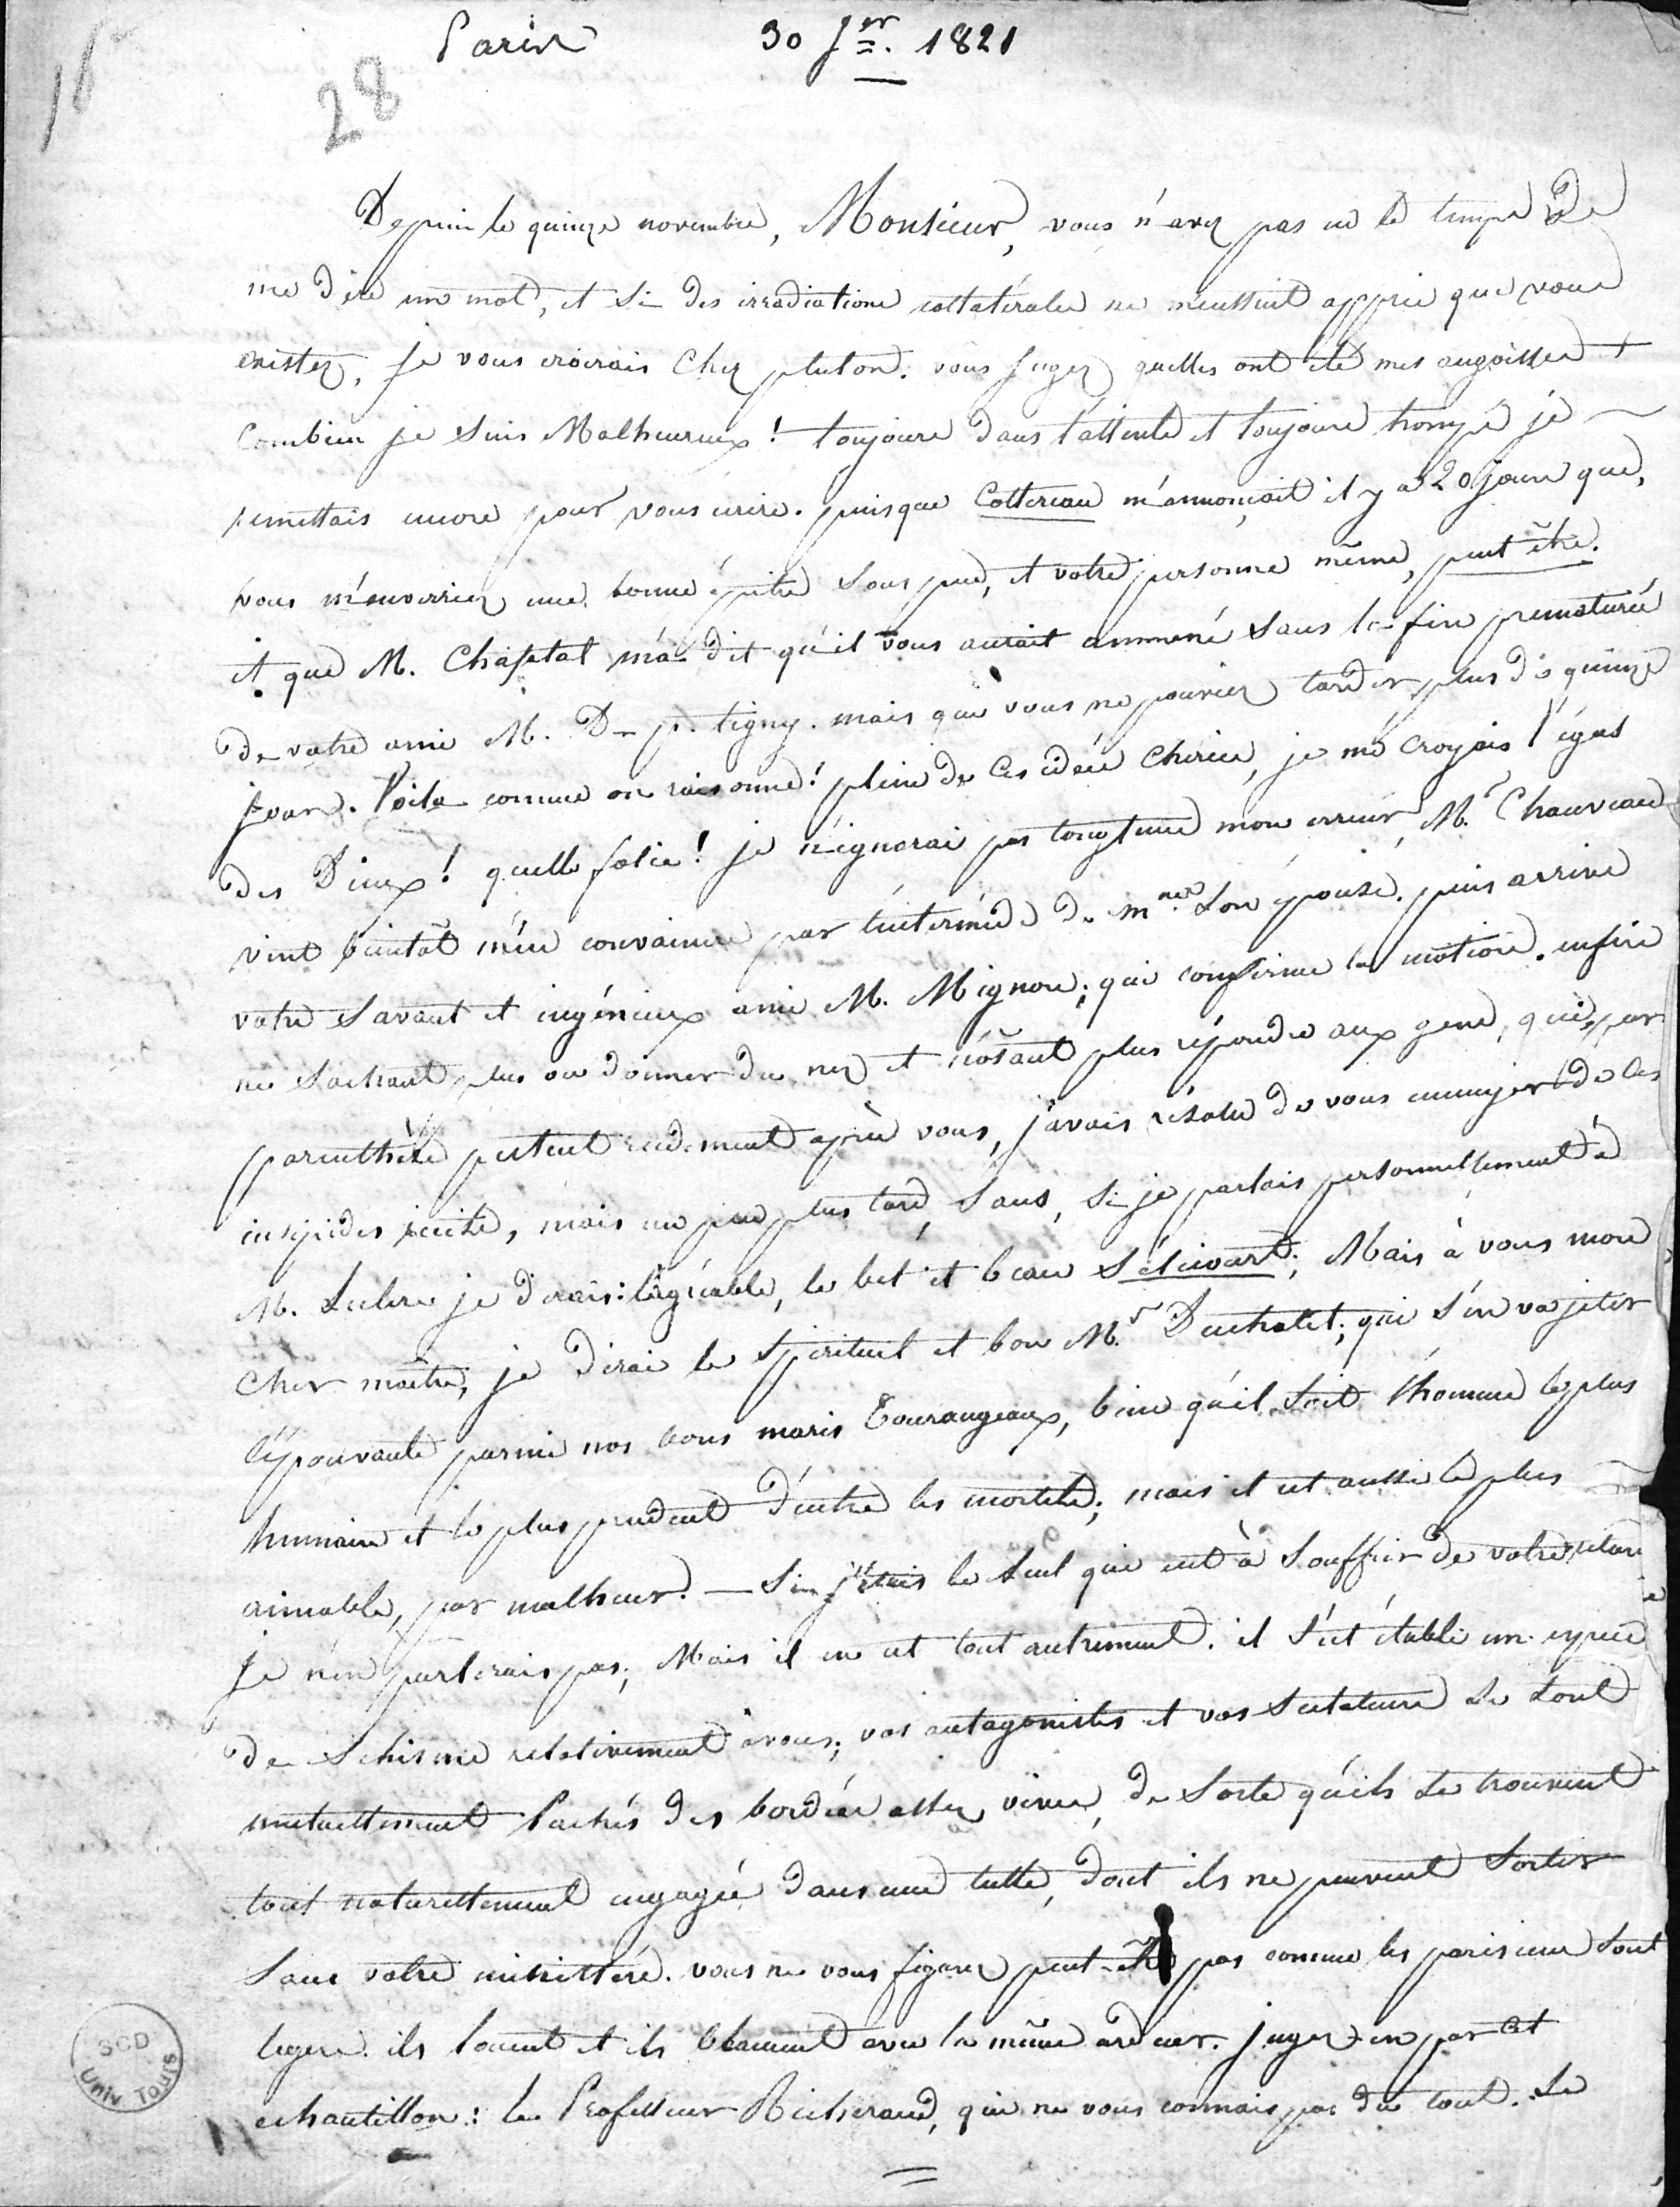 Paris 30 Jer. 1821
28
Depuis le quinze novembre, Monsieur, vous n'avez pas eu le temps de
me dire un mot, et si des irradiations collatérales ne m'eussent appris que vous
existez, je vous croirais chez pluton. vous jugez quelles ont été mes angoisses +
Combien je suis Malheureux! toujours dans l'attente et toujours trompé je
remettais encore pour vous écrire. puisque Cottereau m'annonçait il y a 20 jours que,
vous m'enverriez une bonne épitre sous peu, et votre personne même, peut être.
et que M. Chaptal m'a dit qu'il vous aurait ammené sans la fin prematurée
de votre ami M. De p. tigny. mais que vous ne pouriez tarder plus de quinze
jours. Voila comme on raisonne! plein de ces idées cheries, je me croyais l'égal
des Dieux! quelle folie! je n'ignorai pas longtems mon erreur, Mr. Chauveau
vint bientôt m'en convaincre par l'intermède de son épouse. puis arrive
votre savant et ingénieux ami M. Mignon; qui confirme la motion. enfin
ne sachant plus ou donner du nez et n'osant plus répondre aux gens, qui, par
parenthèse pestent rudement après vous, j'avais résolu de vous ennuyer de ces
insipides récits, mais un peu plus tard, sans, si je parlais personnellement à
M. Leclerc je dirais: l'agréable, le bel et beau Sélivart; Mais à vous mon
Cher maître, je dirai le spirituel et bon Mr. Duchatel; qui s'en va jeter
l'épouvante parmi nos bons maris Tourangeaux, bien qu'il soit l'homme le plus
humain et le plus prudent d'entre les mortels; mais il est aussi le plus
aimable, par malheur. — Si j'étais le seul qui eut à souffrir de votre
je n'en parlerais pas; Mais il en est tout autrement. il s'est établi un espece
de Schisme relativement à vous; vos antagonistes et vos sectateurs se sont
mutuellement lachés des bordées assez vives, de sorte qu'ils se trouvent
tout naturellement engagés dans une lutte, dont ils ne peuvent sortir
sans votre ministère. vous ne vous figurez peut-être pas comme les parisiens sont
legers. ils louent et ils blament avec la même ardeur. jugez-en par cet
echantillon: le Professeur Richerand, qui ne vous connais pas du tout. se
SCD
Univ Tours